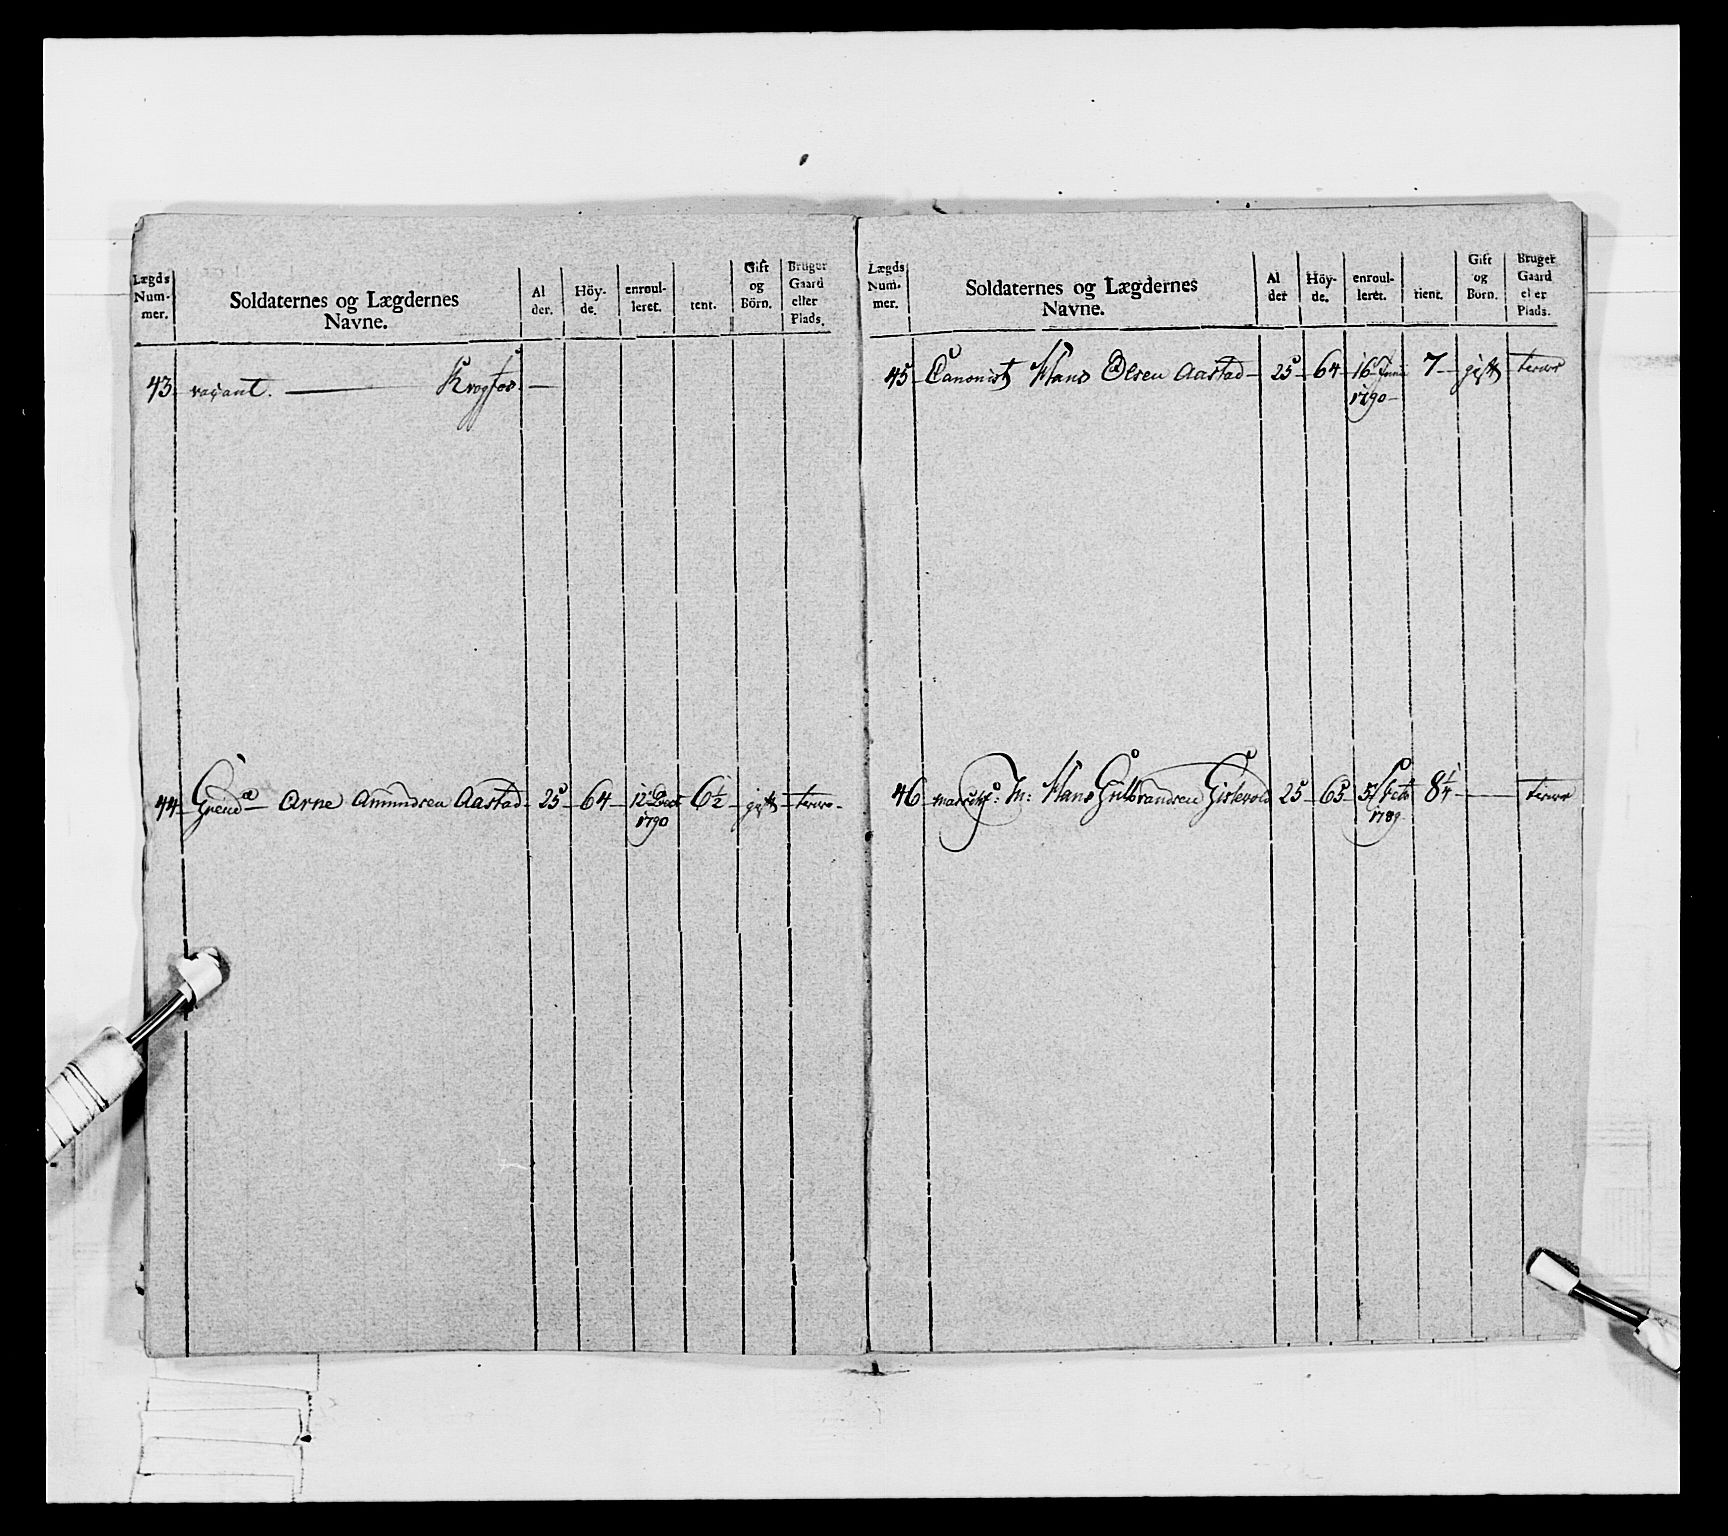 Lægds Num- mer. Soldaternes og Lægdernes Navne. Al der. Höy- de. enroul- leret. tient. Gift og Börn. Bruger Gaard eller Plads.
43. vacant. — Krogfos. —
44 Grend Arne Amundsen Aastad 25 64 12 Dec 6½ gift
1790
Lægds Num- mer. Soldaternes og Lægdernes Navne. Al der Höy- de. enroul- leret. tient. Gift og Börn. Bruger Gaard el er Plads.
45 Canonist Hans Olsen Aastad 25 64 16 Juni 7 gift
1790
46 Hans Gulbrandsen 25 65 5 Octo 8¼ —
1789